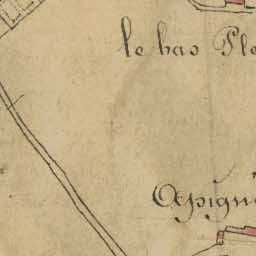 le bas Ple
Apigné